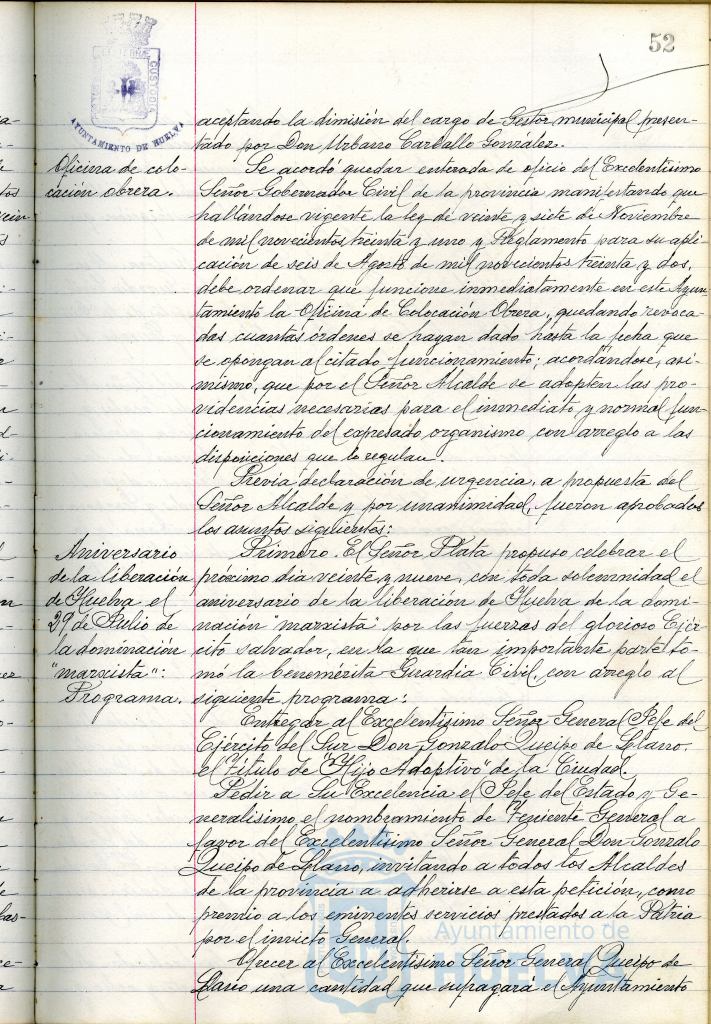 52
AYUNTAMIENTO DE HUELVA
aceptando la dimisión del cargo de Gestor municipal presen-
tado por Don Urbano Carballo González.
Oficina de colo-
cación obrera.
Se acordó quedar enterada de oficio del Excelentísimo
Señor Gobernador Civil de la provincia manifestando que
hallándose vigente la ley de veinte y siete de Noviembre
de mil novecientos treinta y uno y Reglamento para su apli-
cación de seis de Agosto de mil novecientos treinta y dos,
debe ordenar que funcione inmediatamente en este Ayun-
tamiento la Oficina de Colocación Obrera, quedando revoca-
das cuantas órdenes se hayan dado hasta la fecha que
se opongan al citado funcionamiento; acordándose, asi-
mismo, que por el Señor Alcalde se adopten las pro-
videncias necesarias para el inmediato y normal fun-
cionamiento del expresado organismo con arreglo a las
disposiciones que lo regulan.
Previa declaración de urgencia, a propuesta del
Señor Alcalde y por unanimidad, fueron aprobados
los asuntos siguientes:
Aniversario
de la liberación
de Huelva el
29 de Julio de
la dominación
"marxista":
Programa.
Primero. El Señor Plata propuso celebrar el
próximo dia veinte y nueve, con toda solemnidad el
aniversario de la liberación de Huelva de la domi-
nación "marxista" por las fuerzas del glorioso Ejér-
cito salvador, en la que tan importante parte to-
mó la benemérita Guardia Civil, con arreglo al
siguiente programa:
Entregar al Excelentísimo Señor General Jefe del
Ejército del Sur Don Gonzalo Queipo de Llano,
el Título de "Hijo Adoptivo" de la Ciudad.
Pedir a Su Excelencia el Jefe del Estado y Ge-
neralísimo el nombramiento de Teniente General a
favor del Excelentísimo Señor General Don Gonzalo
Queipo de Llano, invitando a todos los Alcaldes
de la provincia a adherirse a esta petición, como
premio a los eminentes servicios prestados a la Patria
por el invicto General.
Ofrecer al Excelentísimo Señor General Queipo de
Llano una cantidad que sufragará el Ayuntamiento
Ayuntamiento de
HUELVA